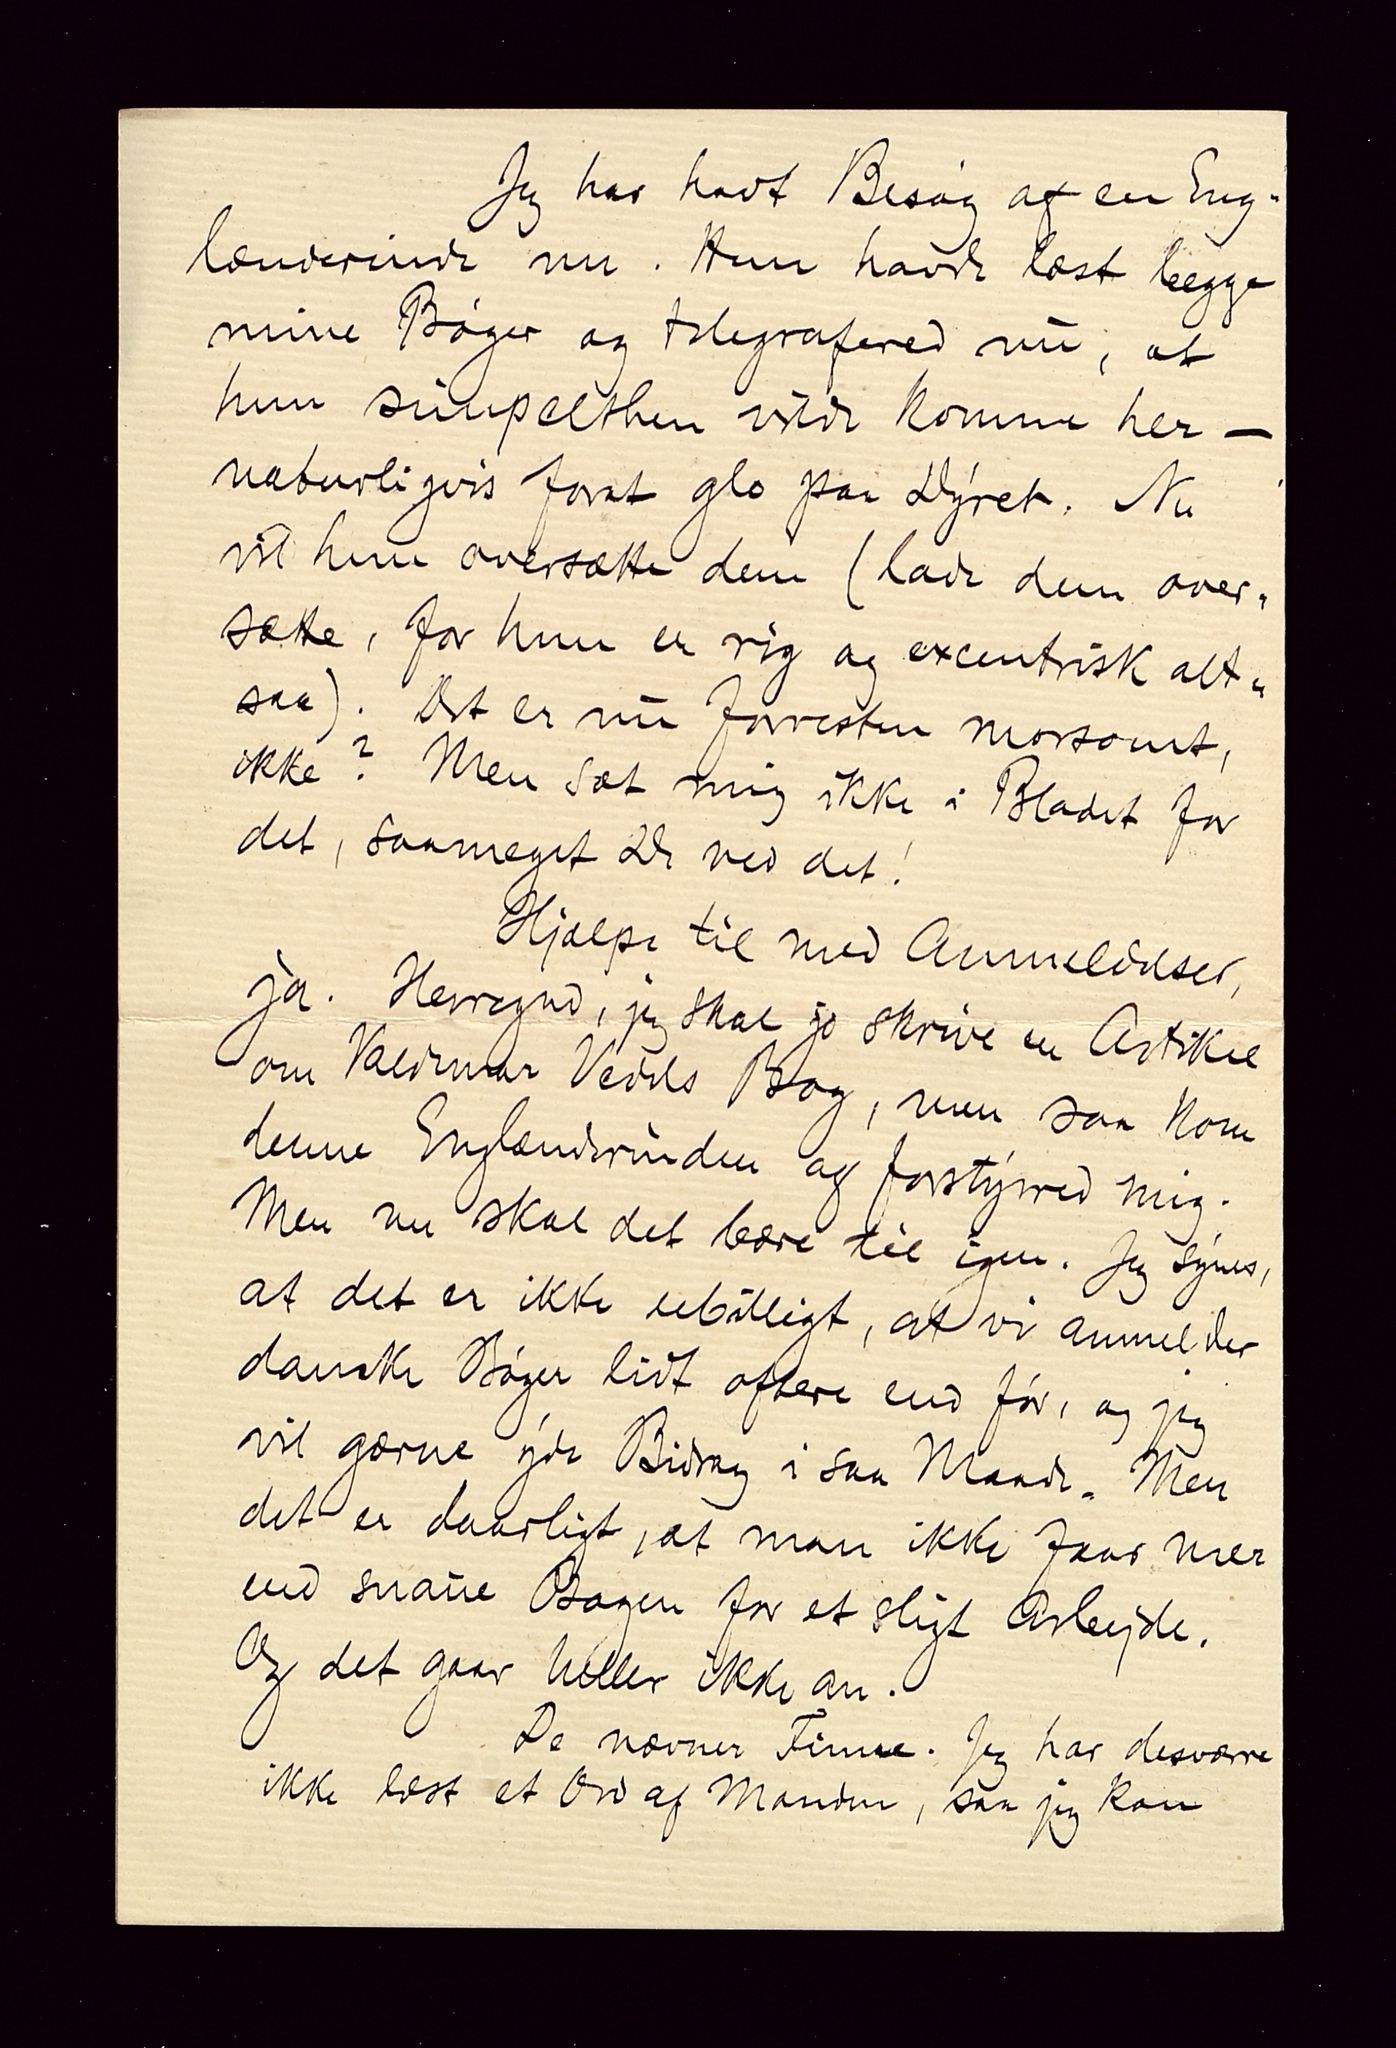 Jeg har havt Besøg af en Eng-
lænderinde nu. Hun havde læst begge
mine Bøger og telegrafered nu, at
hun simpelthen vilde komme her —
naturligvis forat glo paa Dyret. Nu
vil hun oversætte dem (lade dem over-
sætte, for hun er rig og excentrisk alt-
saa). Det er nu forresten morsomt,
ikke? Men sæt mig ikke i Bladet for
det, saameget De ved det!
Hjælpe til med Anmeldelser,
ja. Herregud, jeg skal jo skrive en Artikel
om Valdemar Vedels Bog, men saa kom
denne Englænderinden og forstyrred mig.
Men nu skal det bære til igen. Jeg synes,
at det er ikke ubilligt, at vi anmelder
danske Bøger lidt oftere end før, og jeg
vil gærne yde Bidrag i saa Maade. Men
det er daarligt, at man ikke faar mer
end snaue Bogen for et sligt Arbejde.
Og det gaar heller ikke an.
De nævner Finne. Jeg har desværre
ikke læst et Ord af Manden, saa jeg kan